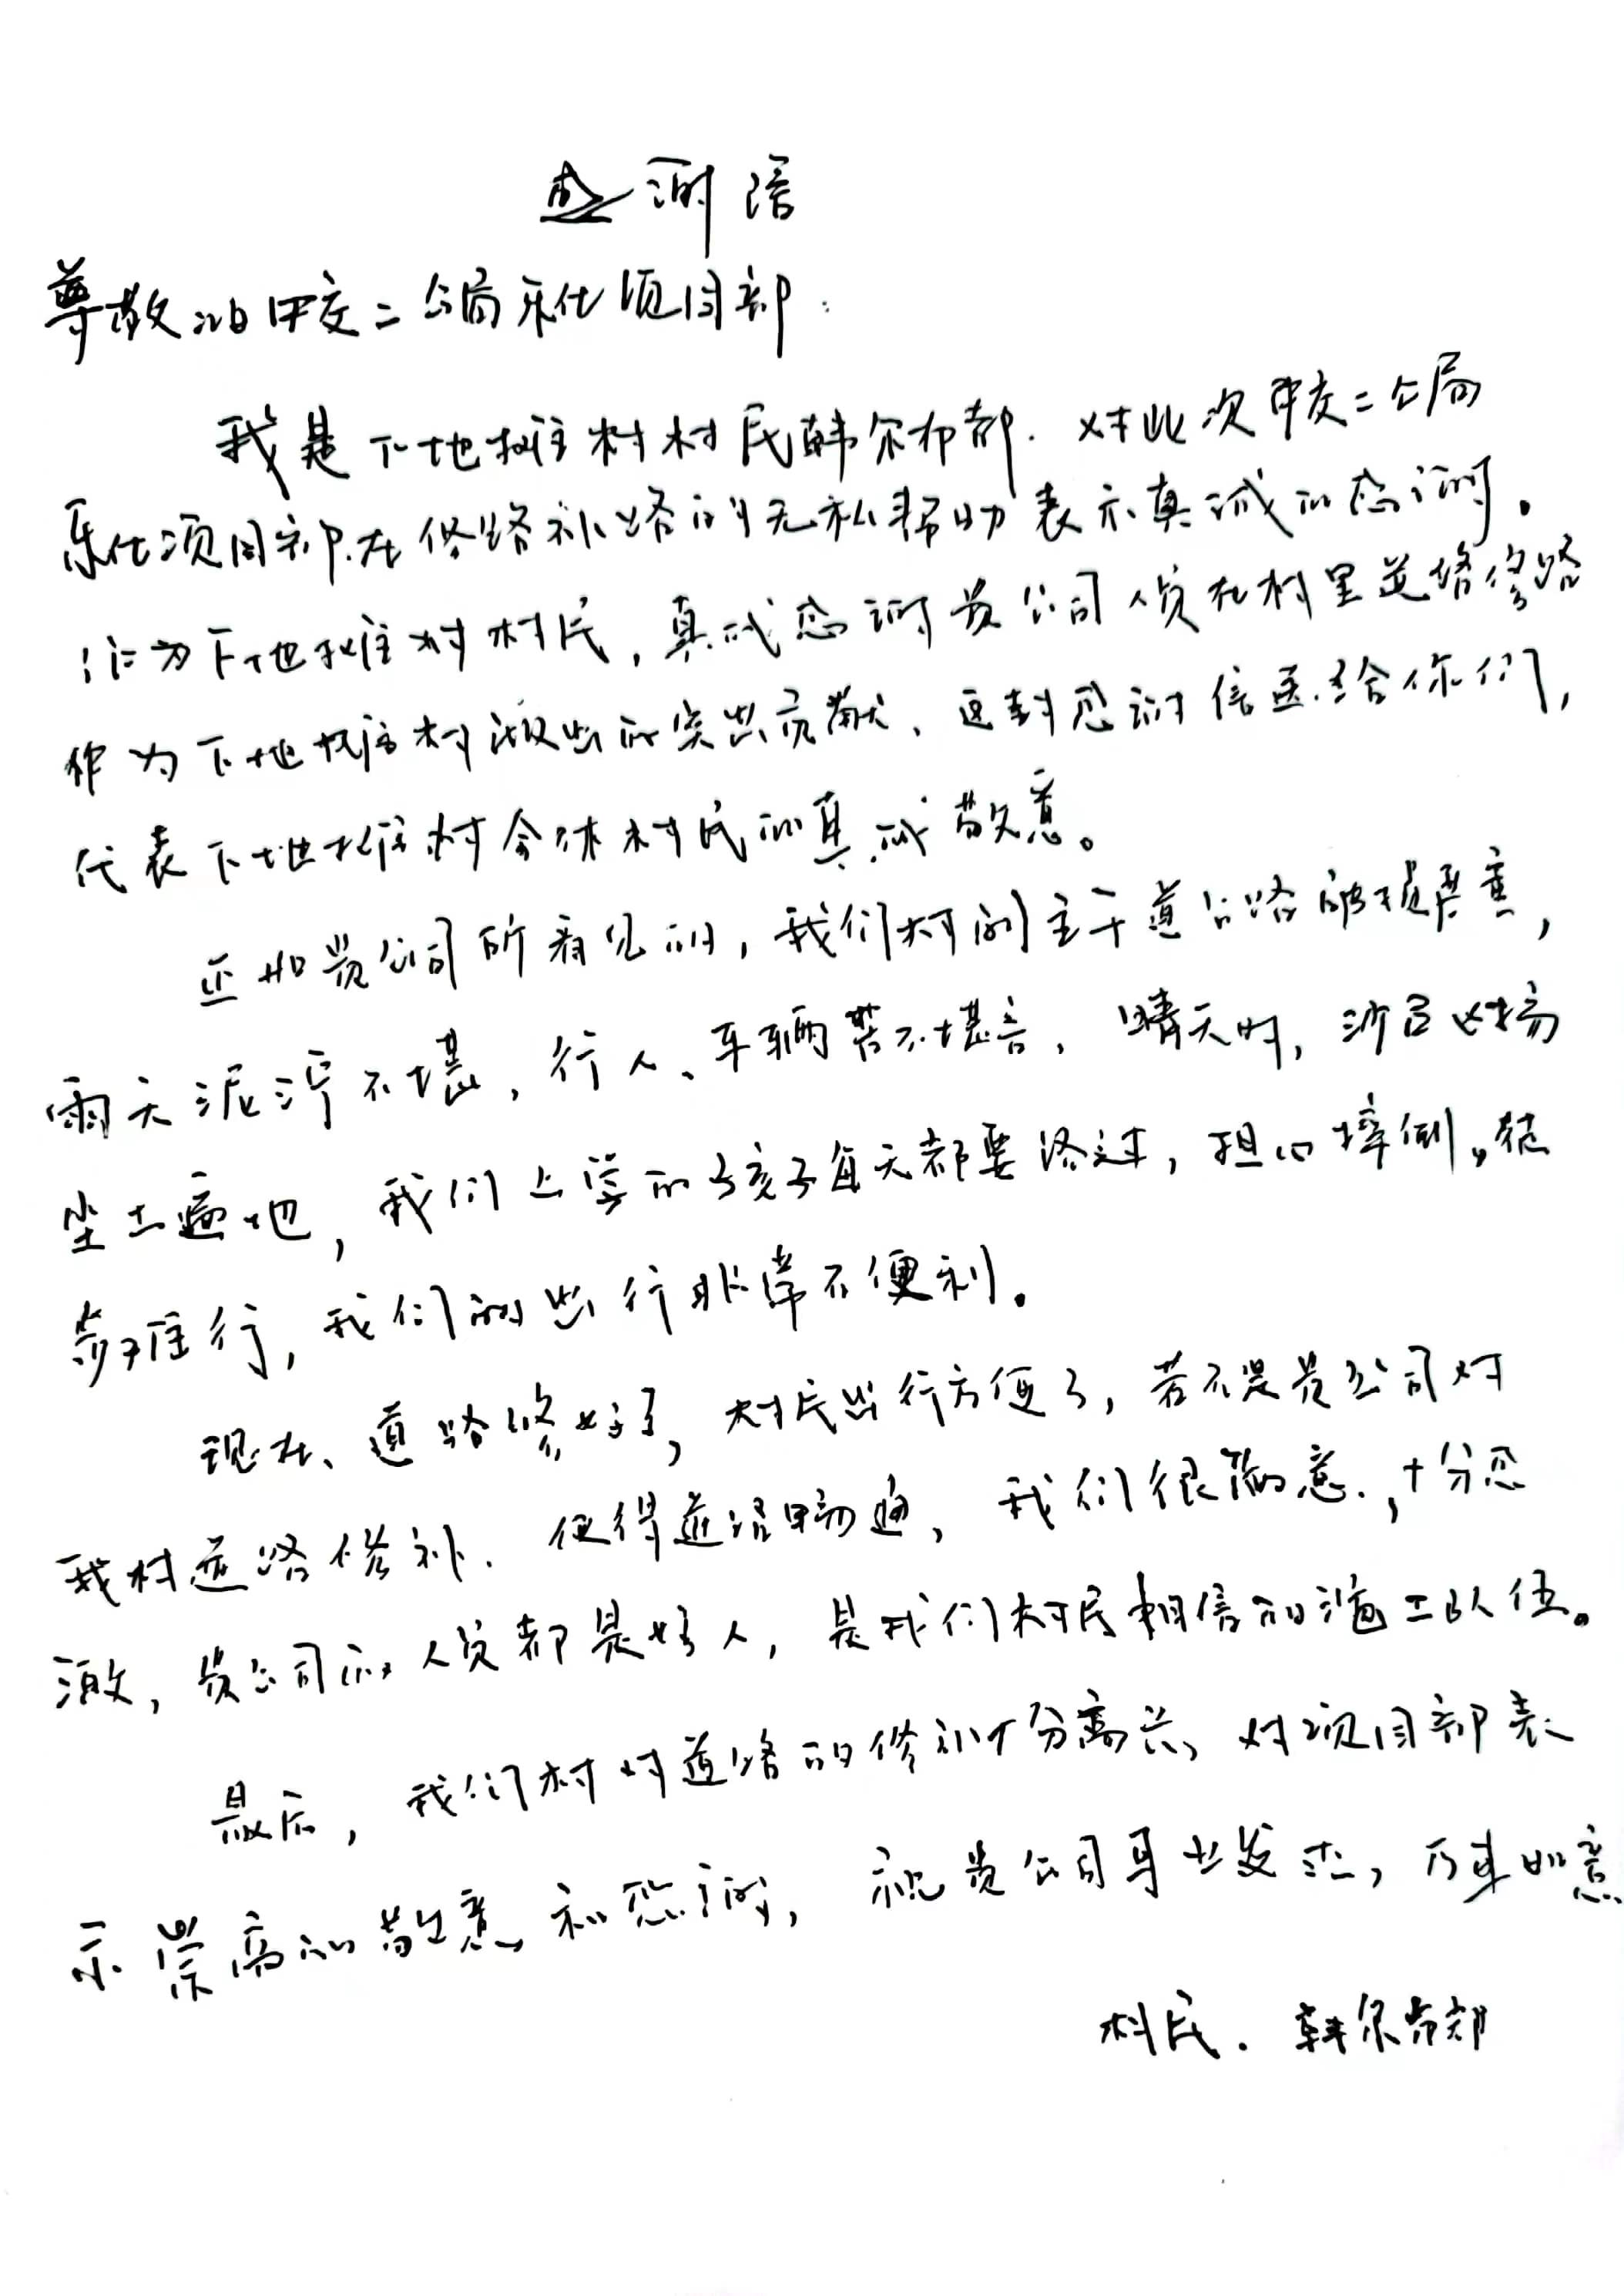 感谢信
尊敬的中交二公局乐化项目部:
我是下地滩村村民韩尔布都.对此次中交二公局
乐化项目部.在修路补路的无私帮助表示真诚的感谢。
作为下地滩村村民,真诚感谢贵公司人员在村里道路修路
作为下地滩村做出的突出贡献、这封感谢信送给你们,
代表下地滩村全体村民的真诚敬意。
正如贵公司所看见的,我们村的主干道公路破损严重,
雨天泥泞不堪,行人、车辆苦不堪言,晴天时,沙尘飞扬
尘土遍地,我们上学的孩子每天都要路过,担心摔倒,
步难行,我们的出行非常不便利。
现在、道路修好了,村民出行方便了,若不是贵公司对
我村道路修补.使得道路畅通,我们很满意.,十分感
激,贵公司的人员都是好人,是我们村民相信的施工队伍。
最后,我们村对道路的修补十分高兴,对项目部表
示崇高的敬意和感谢,祝贵公司事业发达,万事如意
村民.韩尔布都